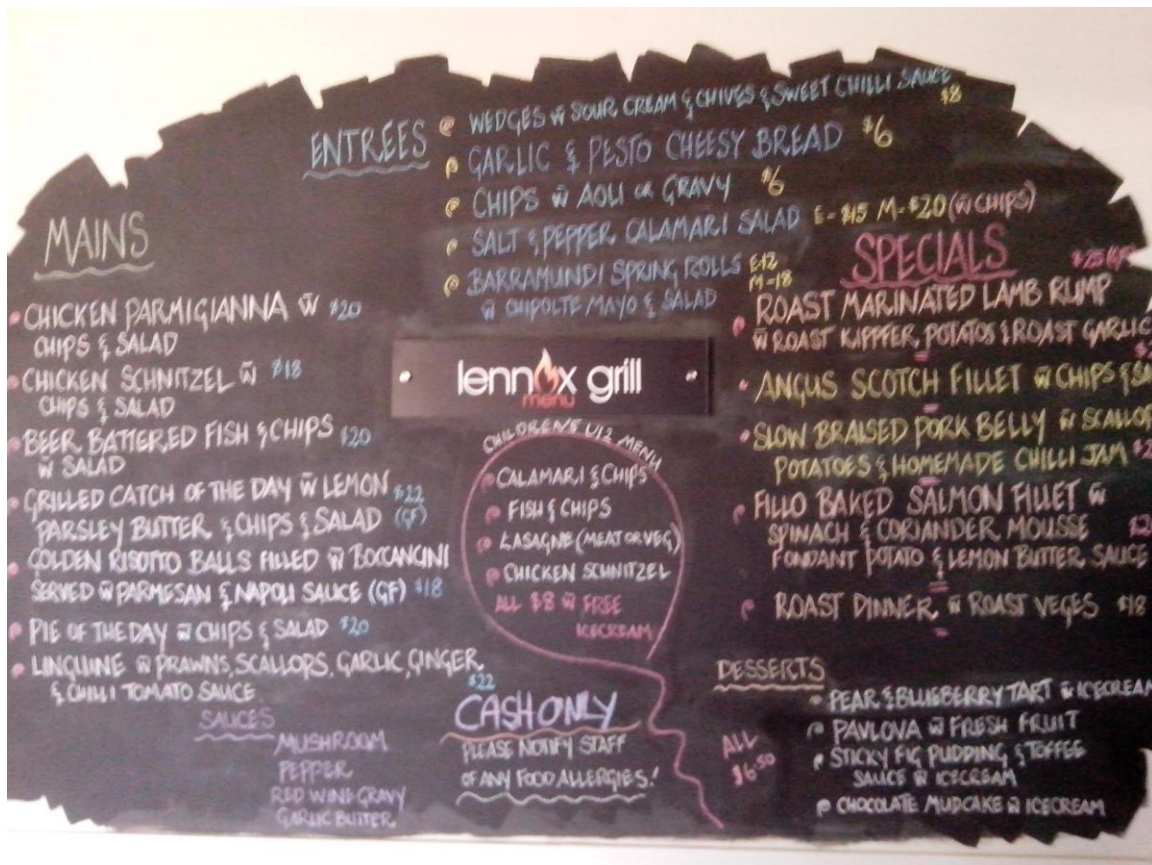 ENTREES
WEDGES W SOUR CREAM & CHIVES & SWEET CHILLI SAUCE $8
GARLIC & PESTO CHEESY BREAD $6
CHIPS W AOLI OR GRAVY $6
SALT & PEPPER CALAMARI SALAD E-$15 M-$20 (W CHIPS)
BARRAMUNDI SPRING ROLLS E-12
M-18
W CHIPOLTE MAYO & SALAD
MAINS
CHICKEN PARMIGIANNA W $20
CHIPS & SALAD
CHICKEN SCHNITZEL W $18
CHIPS & SALAD
BEER BATTERED FISH & CHIPS $20
W SALAD
GRILLED CATCH OF THE DAY W LEMON $22
PARSLEY BUTTER & CHIPS & SALAD (GF)
GOLDEN RISOTTO BALLS FILLED W BOCCANCINI
SERVED W PARMESAN & NAPOLI SAUCE (GF) $18
PIE OF THE DAY W CHIPS & SALAD $20
LINGUINE W PRAWNS, SCALLOPS, GARLIC, GINGER
& CHILLI TOMATO SAUCE $22
SAUCES
MUSHROOM
PEPPER
RED WINE GRAVY
GARLIC BUTTER
lennox grill
menu
CHILDREN'S U12 MENU
CALAMARI & CHIPS
FISH & CHIPS
LASAGNE (MEAT OR VEG)
CHICKEN SCHNITZEL
ALL $8 W FREE
ICECREAM
CASH ONLY
PLEASE NOTIFY STAFF
OF ANY FOOD ALLERGIES!
SPECIALS
$25
ROAST MARINATED LAMB RUMP
W ROAST KIPFFER POTATOS & ROAST GARLIC
ANGUS SCOTCH FILLET W CHIPS &
SLOW BRAISED PORK BELLY W
POTATOES & HOMEMADE CHILLI JAM
FILLO BAKED SALMON FILLET W
SPINACH & CORIANDER MOUSSE
FONDANT POTATO & LEMON BUTTER SAUCE
ROAST DINNER W ROAST VEGES $18
DESSERTS
PEAR & BLUEBERRY TART W ICECREAM
PAVLOVA W FRESH FRUIT
STICKY FIG PUDDING & TOFFEE
SAUCE W ICECREAM
CHOCOLATE MUDCAKE W ICECREAM
ALL
$6.50